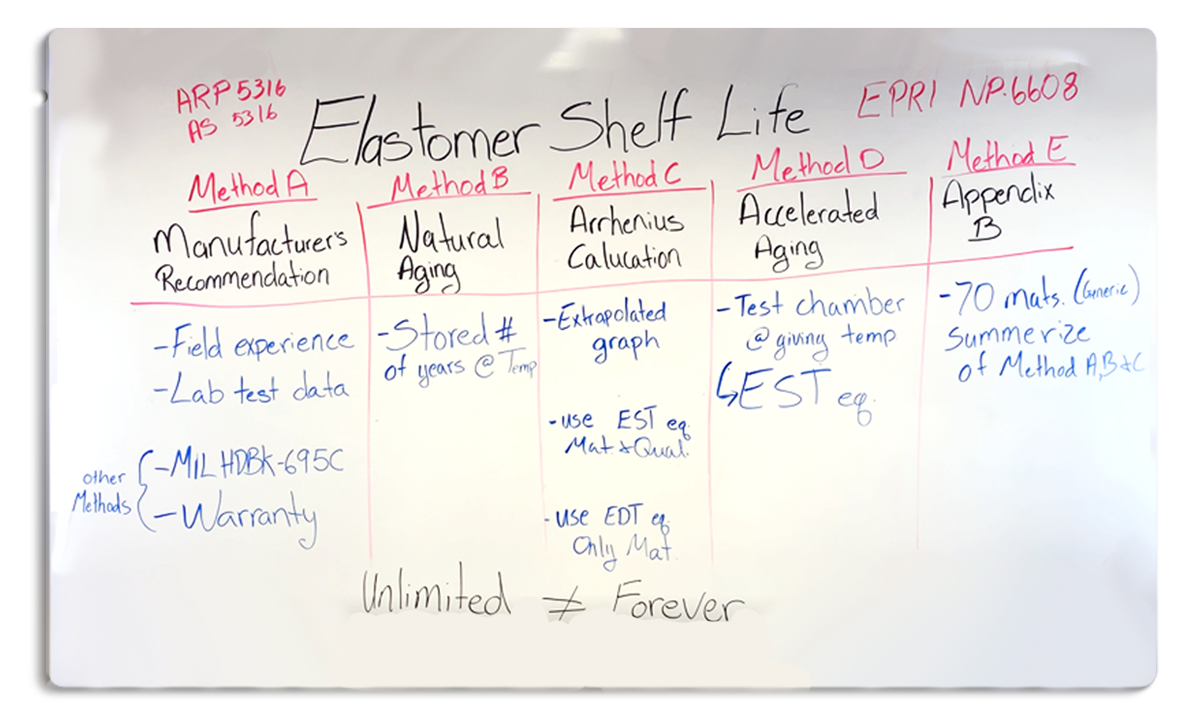 ARP 5316
AS 5316
Elastomer Shelf Life
EPRI NP-6608
Method A
Manufacturer's
Recommendation
-Field experience
-Lab test data
other
Methods
-MIL HDBK-695C
-Warranty
Method B
Natural
Aging
-Stored #
of years @ Temp
Method C
Arrhenius
Calucation
-Extrapolated
graph
-use EST eq.
Mat & Qual.
-use EDT eq.
Only Mat.
Method D
Accelerated
Aging
-Test chamber
@ giving temp
↳EST eq.
Method E
Appendix
B
-70 mats. (Generic)
Summerize
of Method A,B&C
Unlimited ≠ Forever